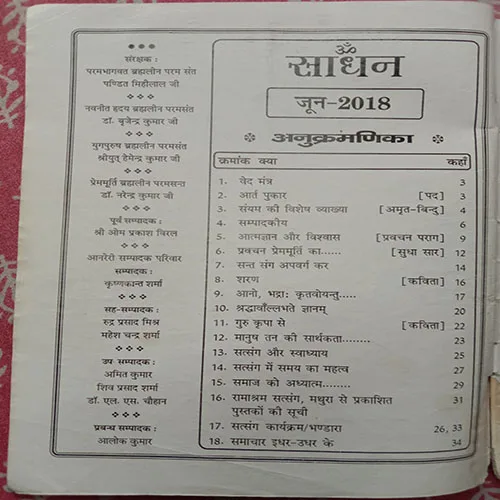 संरक्षक :
परमभागवत ब्रह्मलीन परम संत
पण्डित मिहीलाल जी
नवनीत हृदय ब्रह्मलीन परमसंत
डॉ. बृजेन्द्र कुमार जी
युगपुरुष ब्रह्मलीन परमसंत
श्रीयुत् हेमेन्द्र कुमार जी
प्रेममूर्ति ब्रह्मलीन परमसन्त
डॉ. नरेन्द्र कुमार जी
पूर्व सम्पादक :
श्री ओम प्रकाश विरल
आनरेरी सम्पादक परिवार
सम्पादक :
कृष्णकान्त शर्मा
सह-सम्पादक :
रुद्र प्रसाद मिश्र
महेश चन्द्र शर्मा
उप सम्पादक :
अमित कुमार
शिव प्रसाद शर्मा
डॉ. एल. एस. चौहान
प्रबन्ध सम्पादक :
आलोक कुमार
ॐ
साधन
जून-2018
अनुक्रमणिका
क्रमांक क्या कहाँ
1. वेद मंत्र 3
2. आर्त पुकार [पद] 3
3. संयम की विशेष व्याख्या [अमृत-बिन्दु] 4
4. सम्पादकीय 6
5. आत्मज्ञान और विश्वास [प्रवचन पराग] 9
6. प्रवचन प्रेममूर्ति का...... [सुधा सार] 12
7. सन्त संग अपवर्ग कर 14
8. शरण [कविता] 16
9. आनो, भद्रा: कृतवोयन्तु..... 17
10. श्रद्धावाँल्लभते ज्ञानम् 20
11. गुरु कृपा से [कविता] 22
12. मानुष तन की सार्थकता........ 23
13. सत्संग और स्वाध्याय 25
14. सत्संग में समय का महत्व 27
15. समाज को अध्यात्म....... 29
16. रामाश्रम सत्संग, मथुरा से प्रकाशित 31
पुस्तकों की सूची
17. सत्संग कार्यक्रम/भण्डारा 26, 33
18. समाचार इधर-उधर के 34